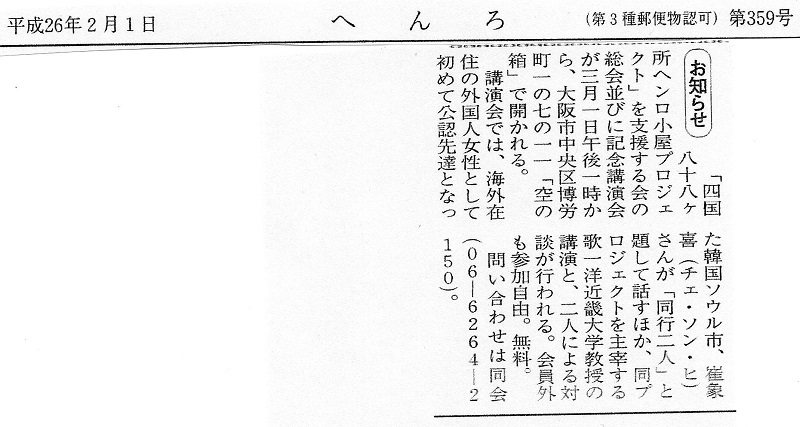 平成26年2月1日
へんろ
(第3種郵便物認可)
第359号
お知らせ
「四国
八十八ヶ
所ヘンロ小屋プロジェ
クト」を支援する会の
総会並びに記念講演会
が三月一日午後一時か
ら、大阪市中央区博労
町一の七の一一「空の
箱」で開かれる。
講演会では、海外在
住の外国人女性として
初めて公認先達となっ
た韓国ソウル市、崔象
喜(チェ・ソン・ヒ)
さんが「同行二人」と
題して話すほか、同プ
ロジェクトを主宰する
歌一洋近畿大学教授の
講演と、二人による対
談が行われる。会員外
も参加自由。無料。
問い合わせは同会
(06—6264—2
150)。